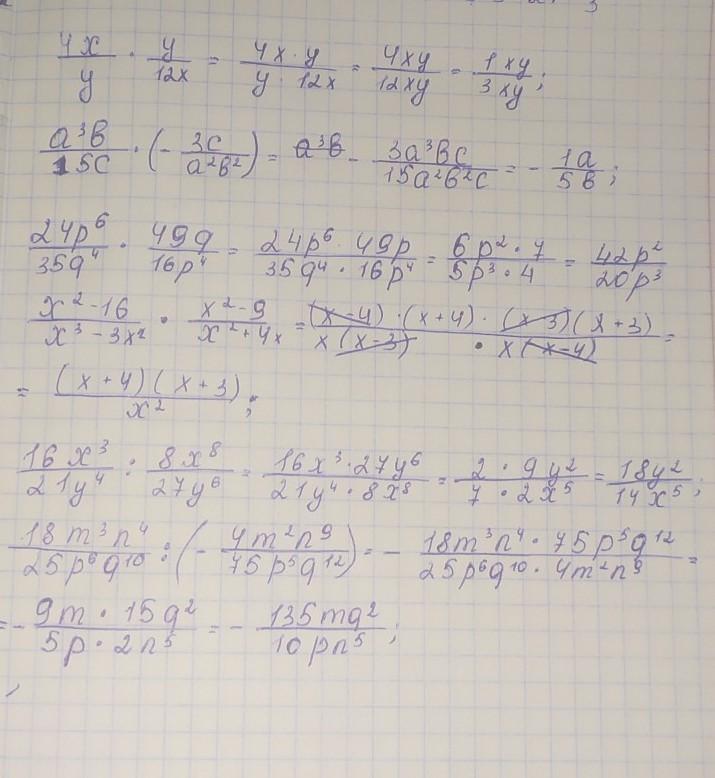 4x/y · y/12x = 4x·y/y·12x = 4xy/12xy = 1xy/3xy;
a³b/15c · (- 3c/a²b²) = - 3a³bc/15a²b²c = - 1a/5b;
24p⁶/35q⁴ · 49q/16p⁴ = 24p⁶·49p/35q⁴·16p⁴ = 6p²·7/5p³·4 = 42p²/20p³
x²-16/x³-3x² · x²-9/x²+4x = (x-4)·(x+4)·(x-3)(x+3)/x(x-3)·x(x-4) =
= (x+4)(x+3)/x²;
16x³/21y⁴ : 8x⁸/27y⁶ = 16x³·27y⁶/21y⁴·8x⁸ = 2·9y²/7·2x⁵ = 18y²/14x⁵;
18m³n⁴/25p⁶q¹⁰ : (- 4m²n⁹/75p⁵q¹²) = - 18m³n⁴·75p⁵q¹²/25p⁶q¹⁰·4m²n⁹ =
= - 9m·15q²/5p·2n⁵ = - 135mq²/10pn⁵;